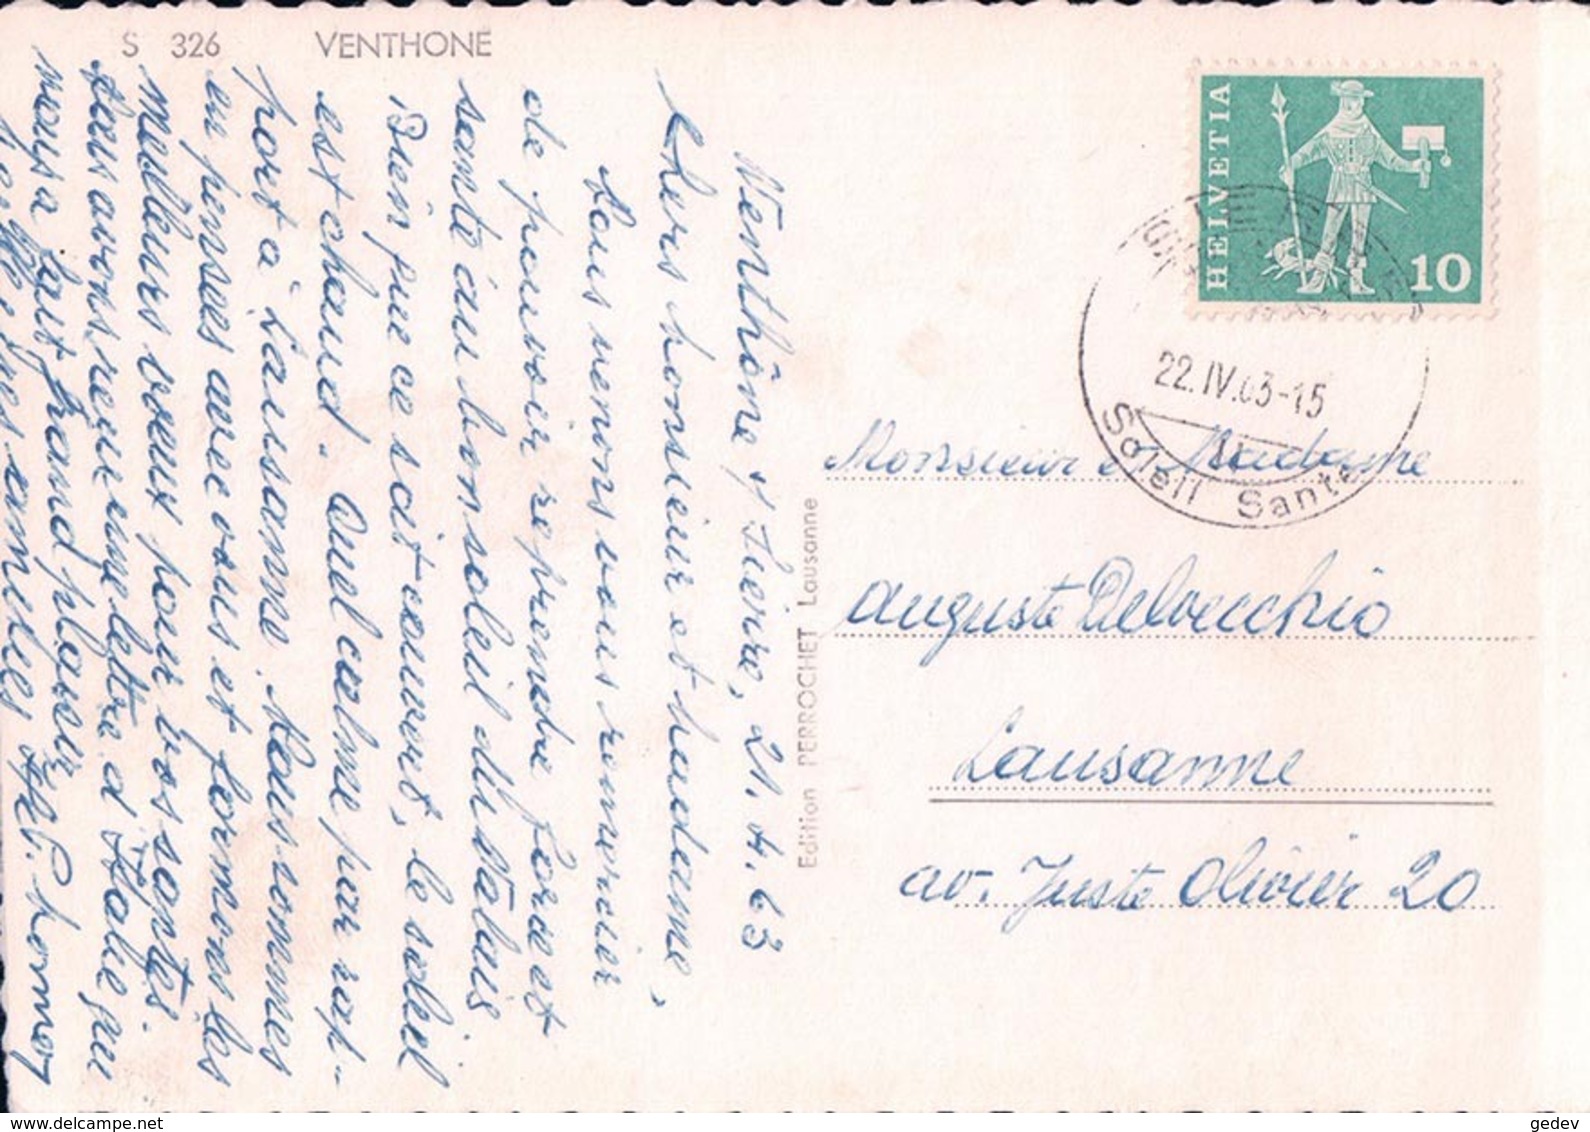 S 326 VENTHONE
Venthône s/Sierre, 21.4.63
Chers Monsieur et Madame,
Nous venons vous remercier
de pouvoir reprendre force et
santé au bon soleil du Valais
Bien que ce soit couvert, le soleil
est chaud. Quel calme par rap-
port à Lausanne. Nous sommes
en pensées avec vous et formons les
meilleurs vœux pour vos santés.
Nous avons reçu une lettre d'Italie qui
nous a fait grand plaisir
Edition PERROCHET Lausanne
HELVETIA
10
22.IV.63-15
Soleil Santé
Monsieur et Madame
Auguste Delvecchio
Lausanne
av. Juste Olivier 20
www.delcampe.net
gedev